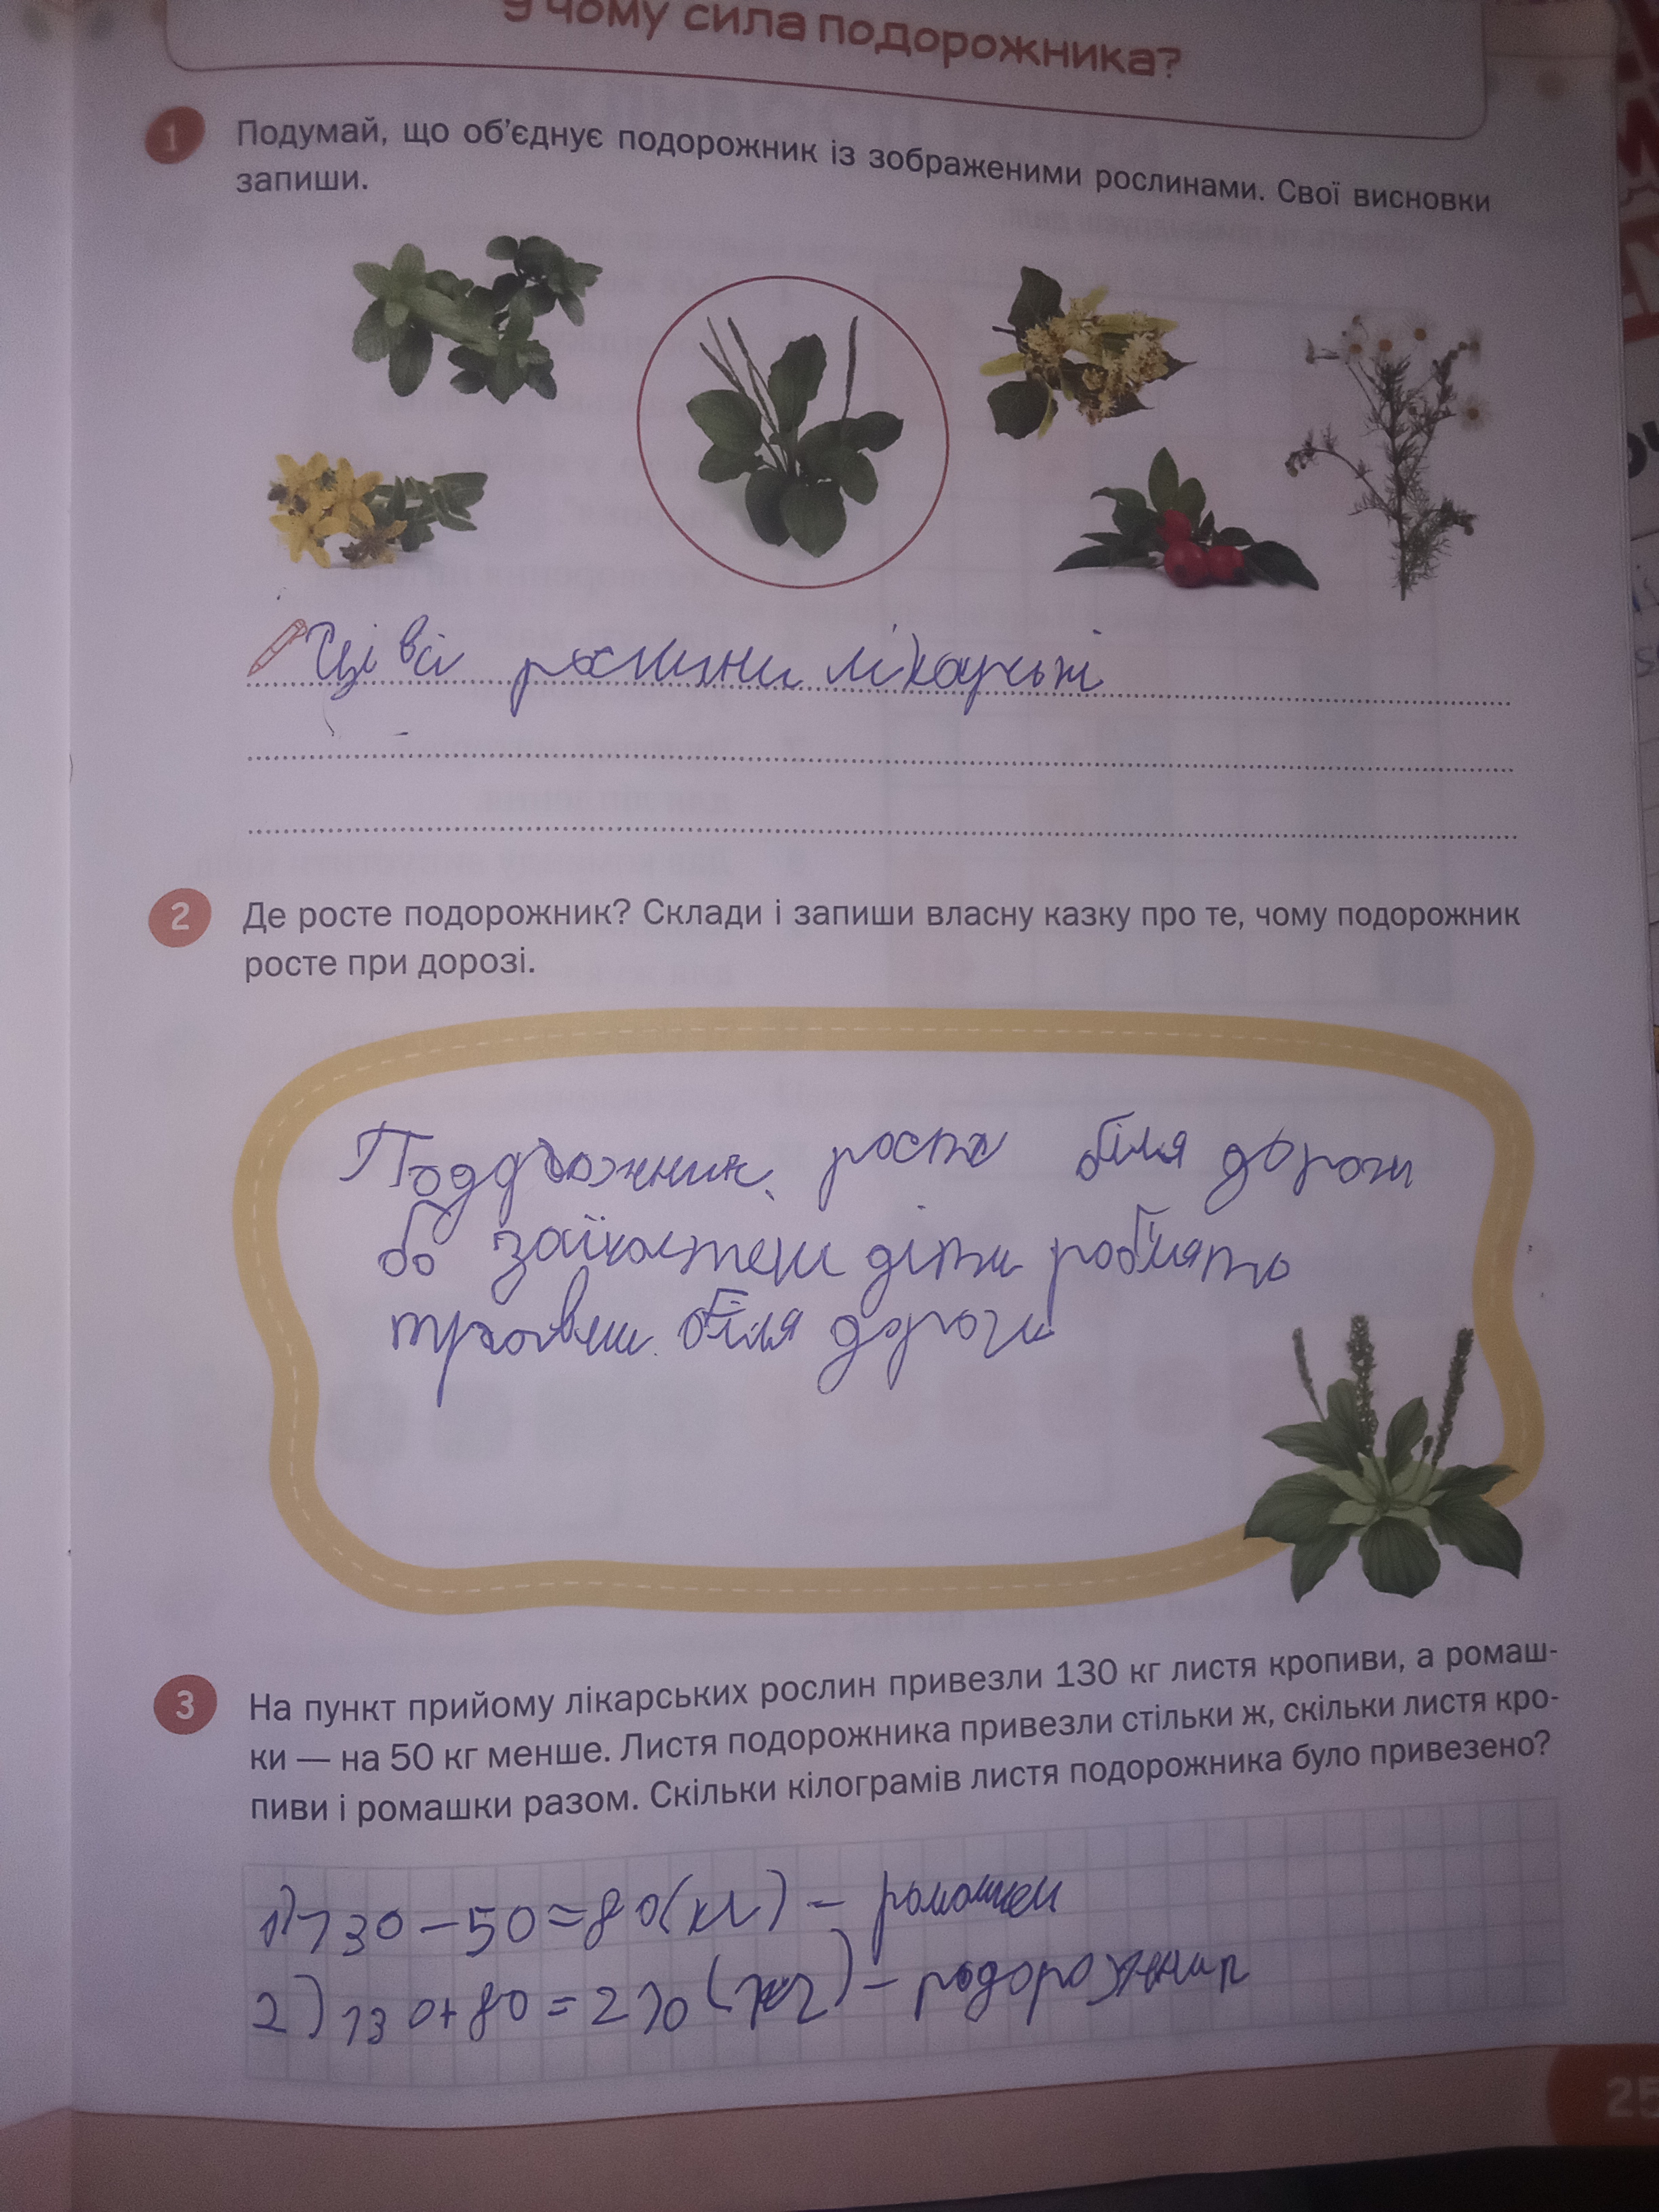 У чому сила подорожника?
1 Подумай, що об'єднує подорожник із зображеними рослинами. Свої висновки
запиши.
Ці всі рослини лікарські
2 Де росте подорожник? Склади і запиши власну казку про те, чому подорожник
росте при дорозі.
Подорожник росте біля дороги
бо діти роблять
біля дороги
3 На пункт прийому лікарських рослин привезли 130 кг листя кропиви, а ромаш-
ки — на 50 кг менше. Листя подорожника привезли стільки ж, скільки листя кро-
пиви і ромашки разом. Скільки кілограмів листя подорожника було привезено?
1) 130-50=80(кг) - ромашки
2) 130+80=210(кг) - подорожник
25